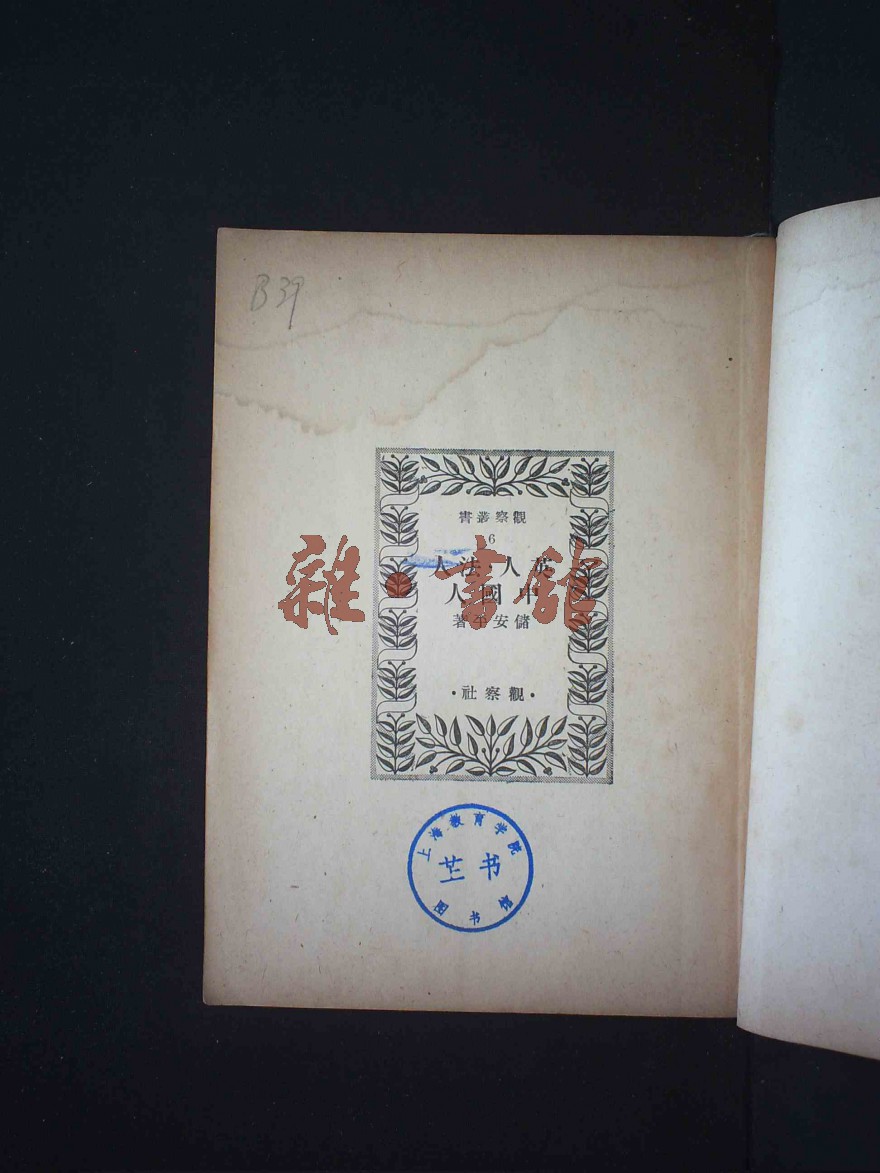 B39
觀察叢書
6
英人·法人
中國人
儲安平著
·觀察社·
雜·書館
上海教育学院
书
图书馆